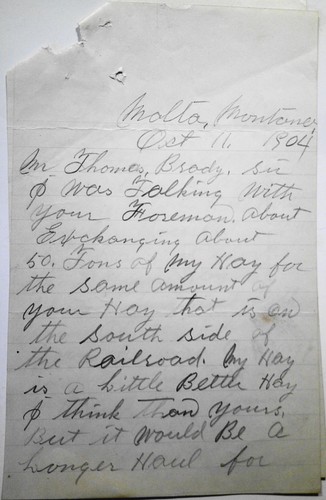 Malta, Montana,
Oct 11. 1904
Mr Thomas, Brady. Sir
I Was Talking With
your Foreman. About
Exchanging About
50. Tons of My Hay for
the same amount of
your Hay that is on
the South side of
the Railroad. My Hay
is a Little Better Hay
I think than yours.
But it Would Be a
Longer Haul for